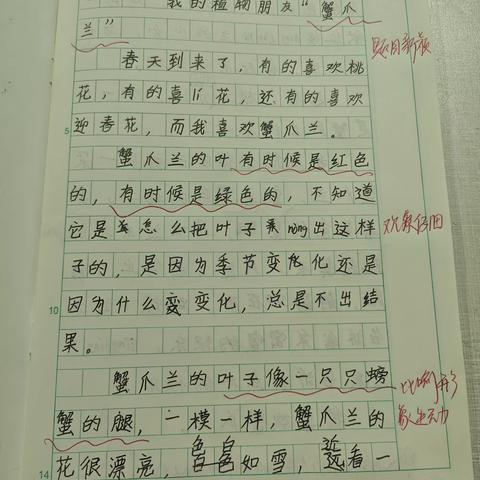 我的植物朋友“蟹爪
兰”
题目新颖
春天到来了，有的喜欢桃
花，有的喜lí花，还有的喜欢
迎春花，而我喜欢蟹爪兰。
5
蟹爪兰的叶有时候是红色
的，有时候是绿色的，不知道
它是怎么把叶子 nòng出这样
观察仔细
子的，是因为季节变化还是
10
因为什么变变化，总是不出结
果。
蟹爪兰的叶子像一只只螃
比喻形
蟹的腿，一模一样，蟹爪兰的
象生动
花很漂亮，色白如雪，近看一
14